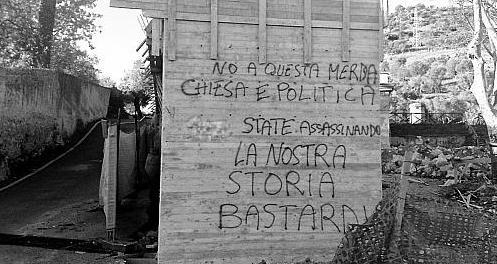 NO A QUESTA MERDA
CHIESA E POLITICA
STATE ASSASSINANDO
LA NOSTRA
STORIA
BASTARDI